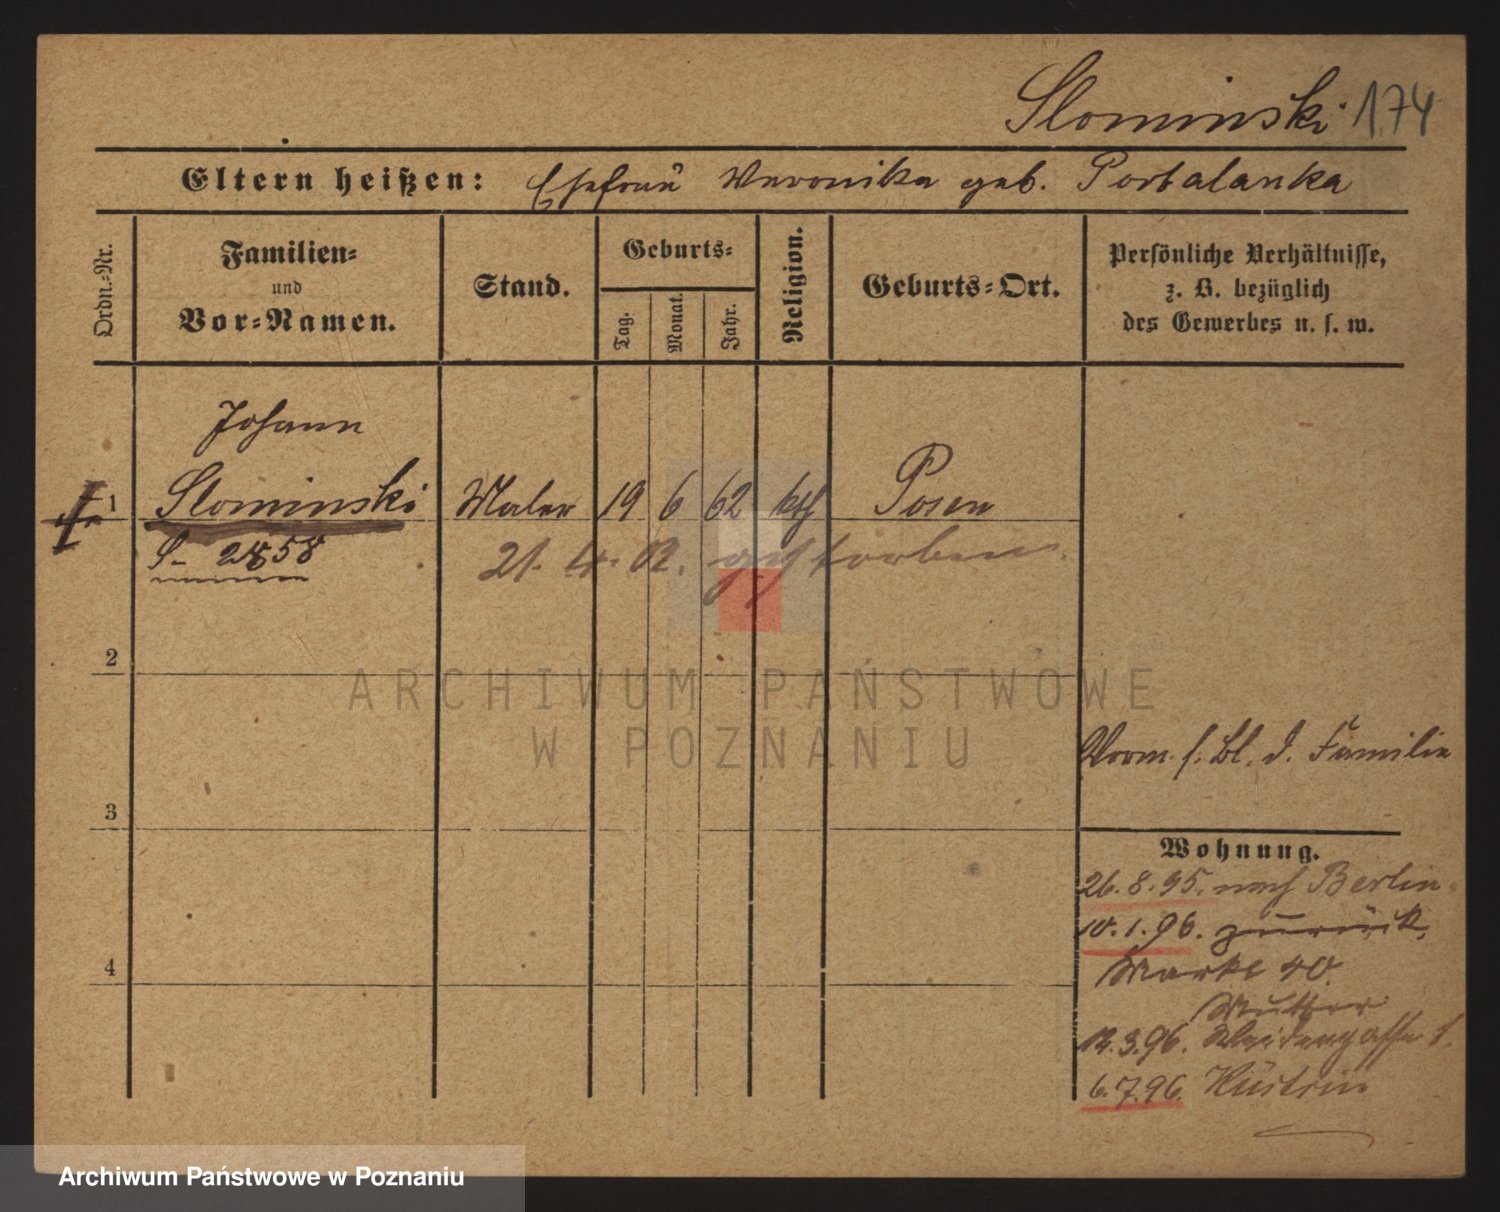 Slominski 174
Eltern heißen: Ehefrau Weronika geb. Portalanka
Ordn.-Nr.
Familien-
und
Vor-Namen.
Stand.
Geburts-
Tag.
Monat.
Jahr.
Religion.
Geburts-Ort.
Persönliche Verhältnisse,
z. B. bezüglich
des Gewerbes u. s. w.
Johann
1 Slominski Maler 19 6 62 kth Posen
S- 2858
21. 4. 02. gestorben.
2
ARCHIWUM PAŃSTWOWE
W POZNANIU
Vorm. s. Bl. d. Familie
3
Wohnung.
26.8.95. nach Berlin
10.1.96. zurück,
4
Markt 40.
Mutter
12.3.96. Weidengasse
6.7.96. Küstrin
Archiwum Państwowe w Poznaniu